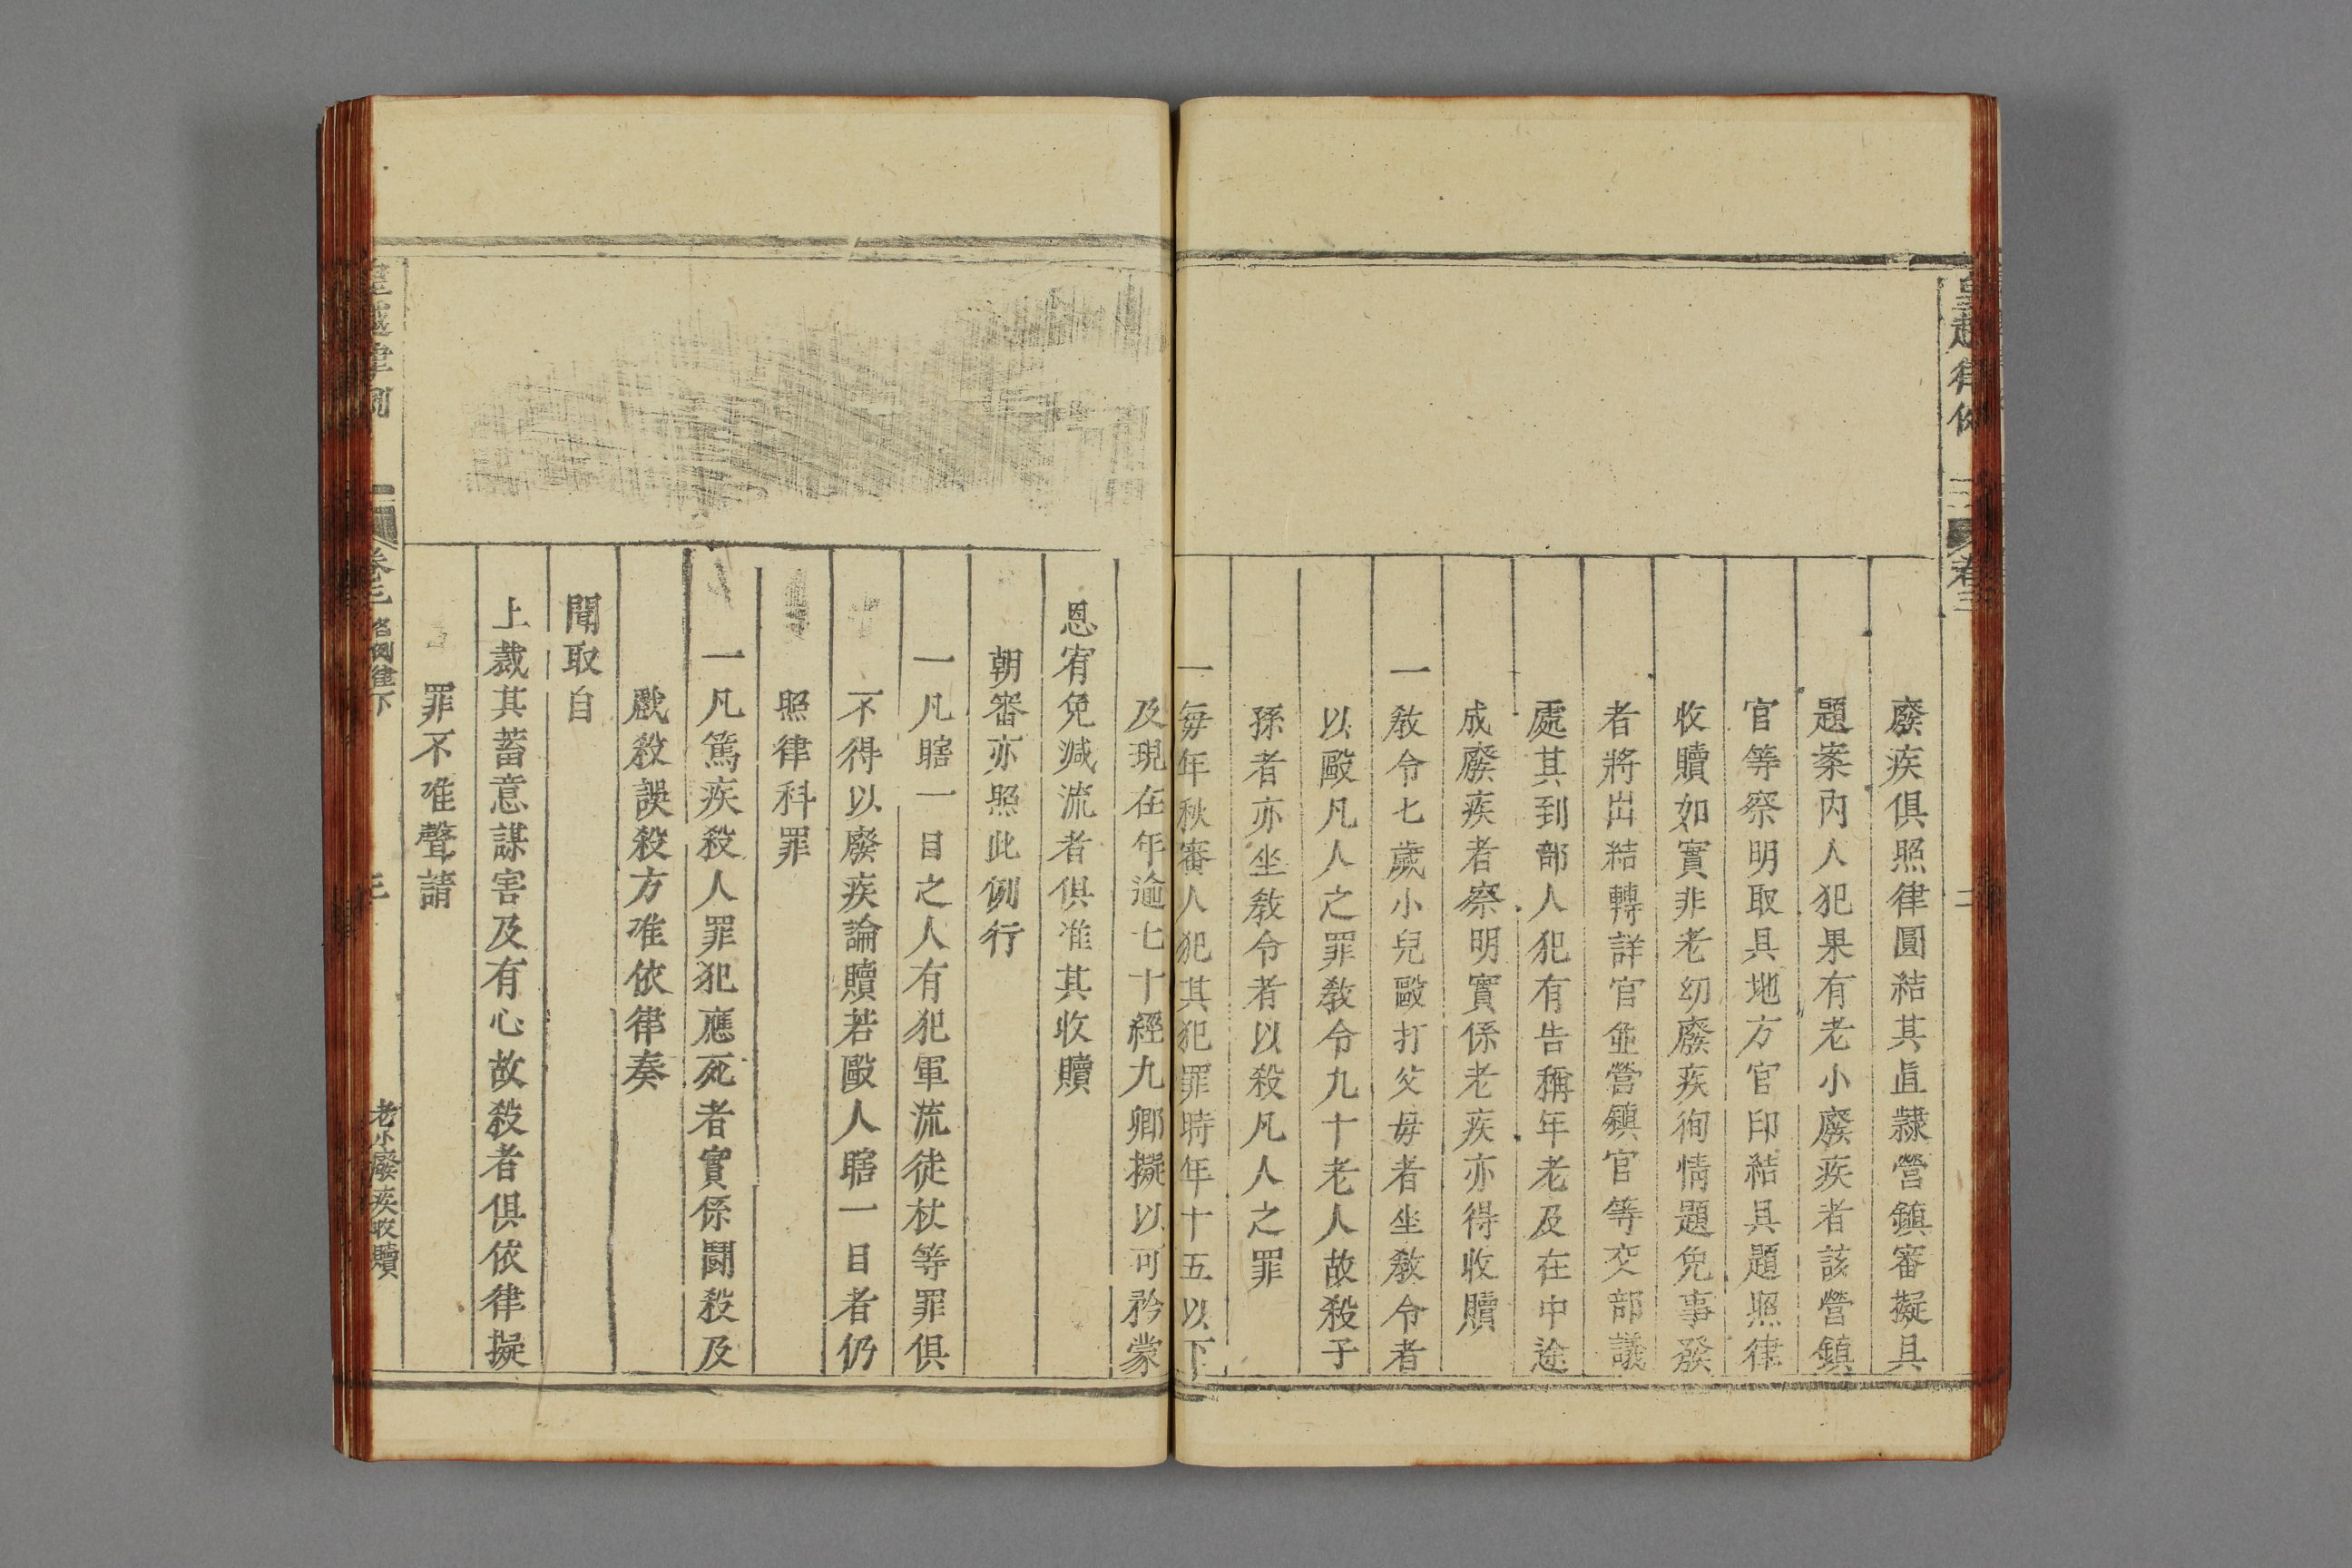 皇越律例
卷三
二
廢疾俱照律圓結其直隸營鎮審擬具
題案內人犯果有老小廢疾者該營鎮
官等察明取具地方官印結具題照律
收贖如實非老幼廢疾徇情題免事發
者將出結轉詳官並營鎮官等交部議
處其到部人犯有告稱年老及在中途
成廢疾者察明實係老疾亦得收贖
一教令七歲小兒毆打父母者坐教令者
以毆凡人之罪教令九十老人故殺子
孫者亦坐教令者以殺凡人之罪
一每年秋審人犯其犯罪時年十五以下
及現在年逾七十經九卿擬以可矜蒙
恩宥免減流者俱准其收贖
朝審亦照此例行
一凡瞎一目之人有犯軍流徒杖等罪俱
不得以廢疾論贖若毆人瞎一目者仍
照律科罪
一凡篤疾殺人罪犯應死者實係鬪殺及
戲殺誤殺方准依律奏
聞取自
上裁其蓄意謀害及有心故殺者俱依律擬
罪不准聲請
皇越律例
卷三
名例律下
老小廢疾收贖